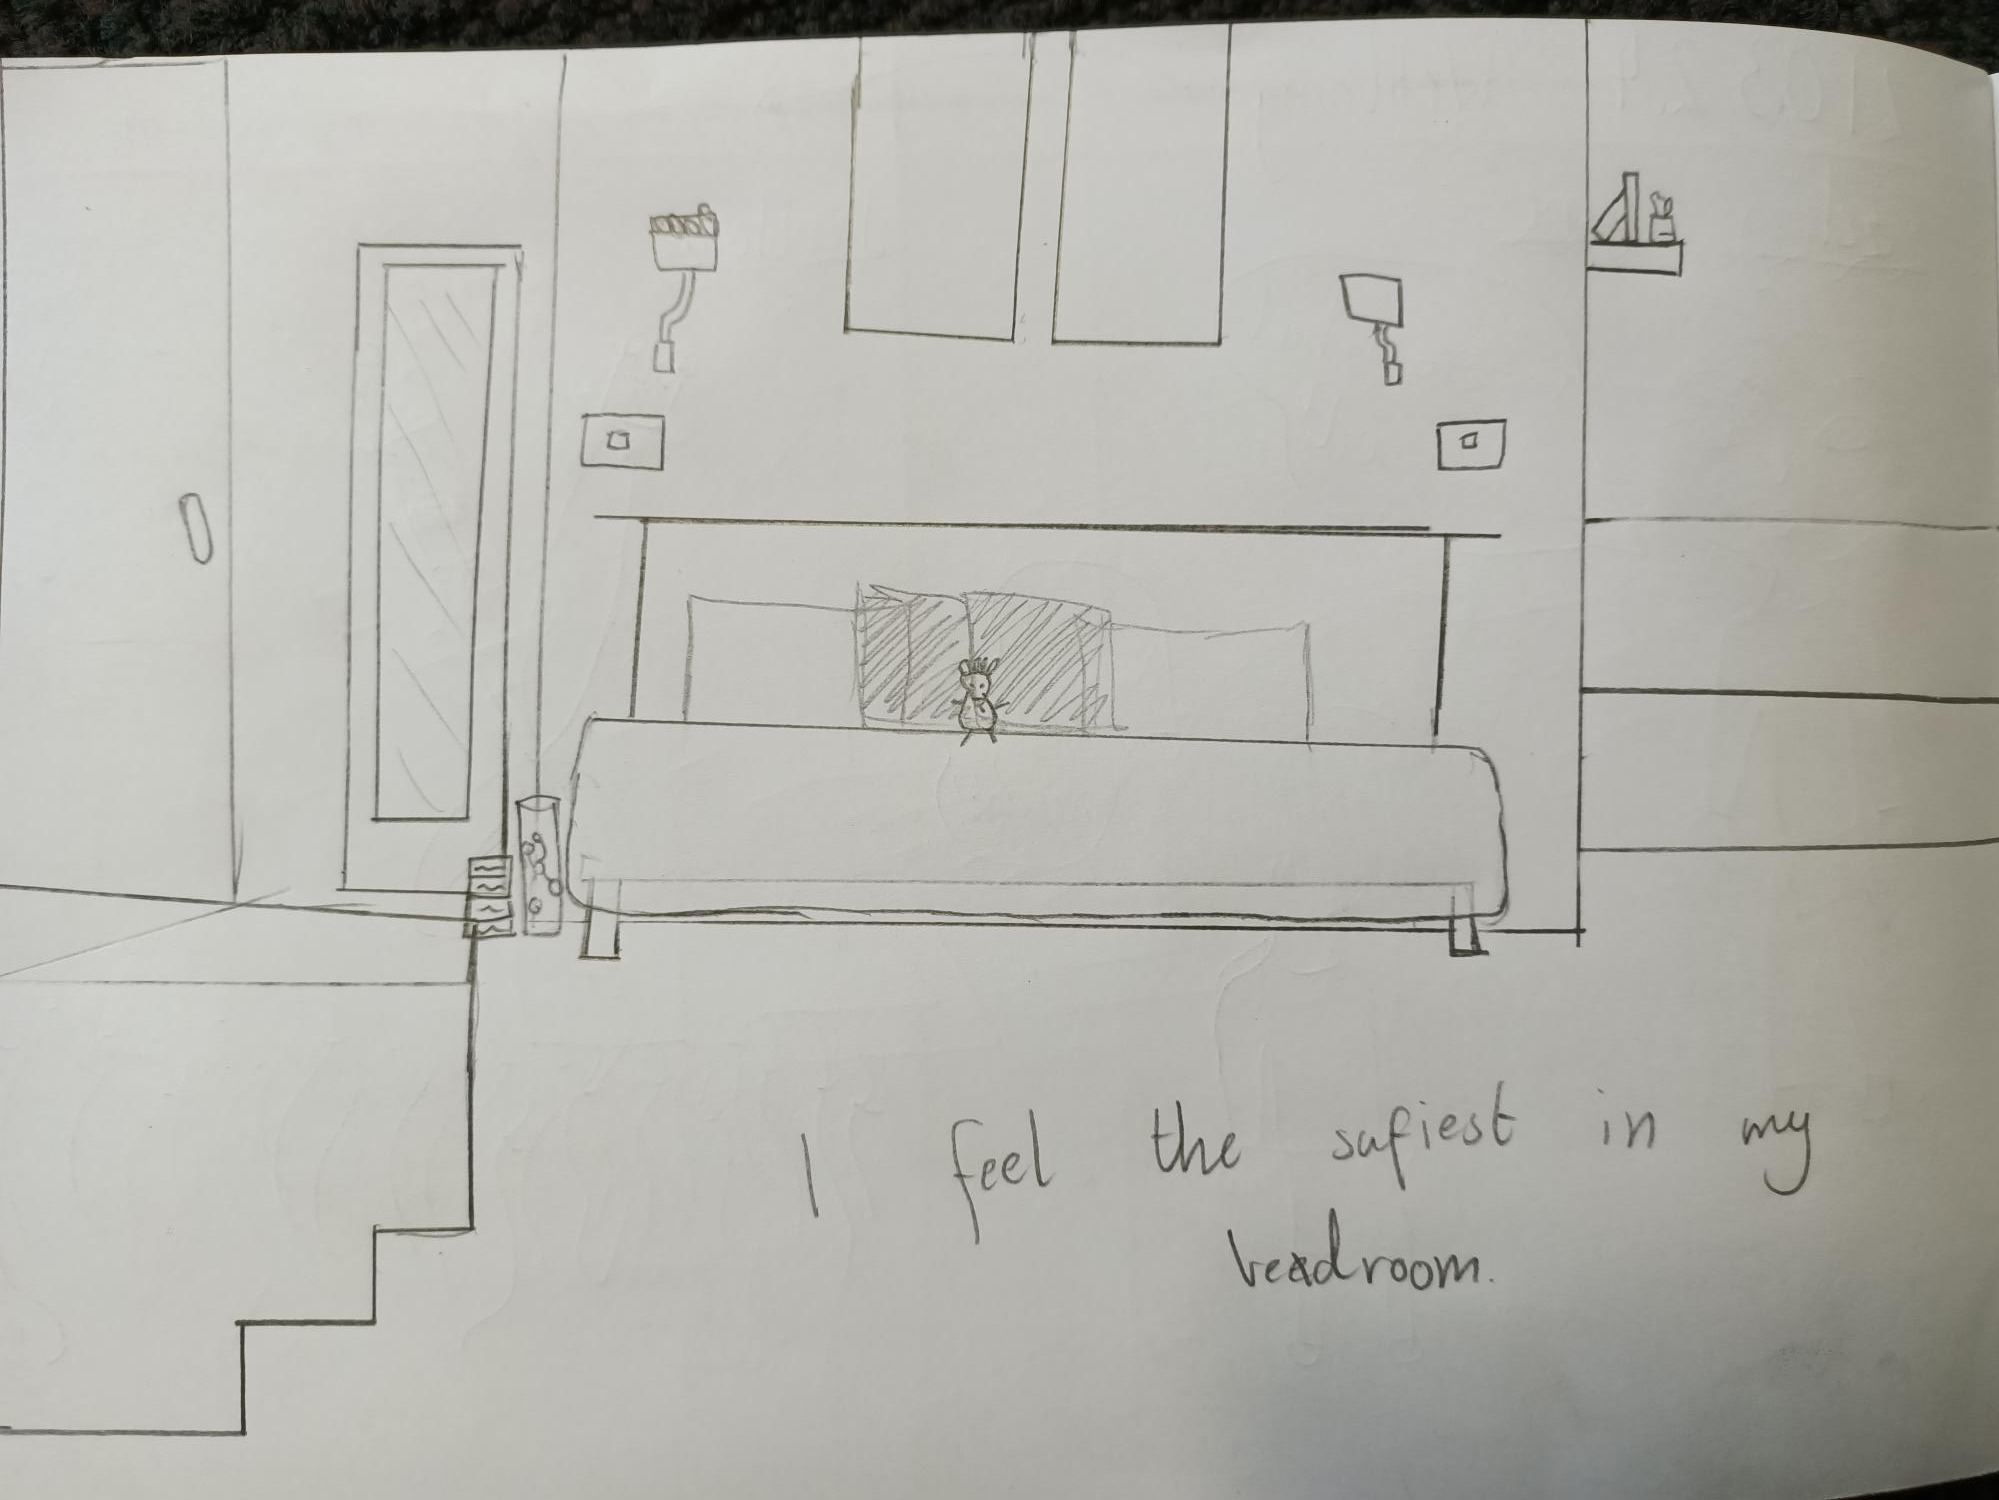 I feel the safiest in my
bedroom.